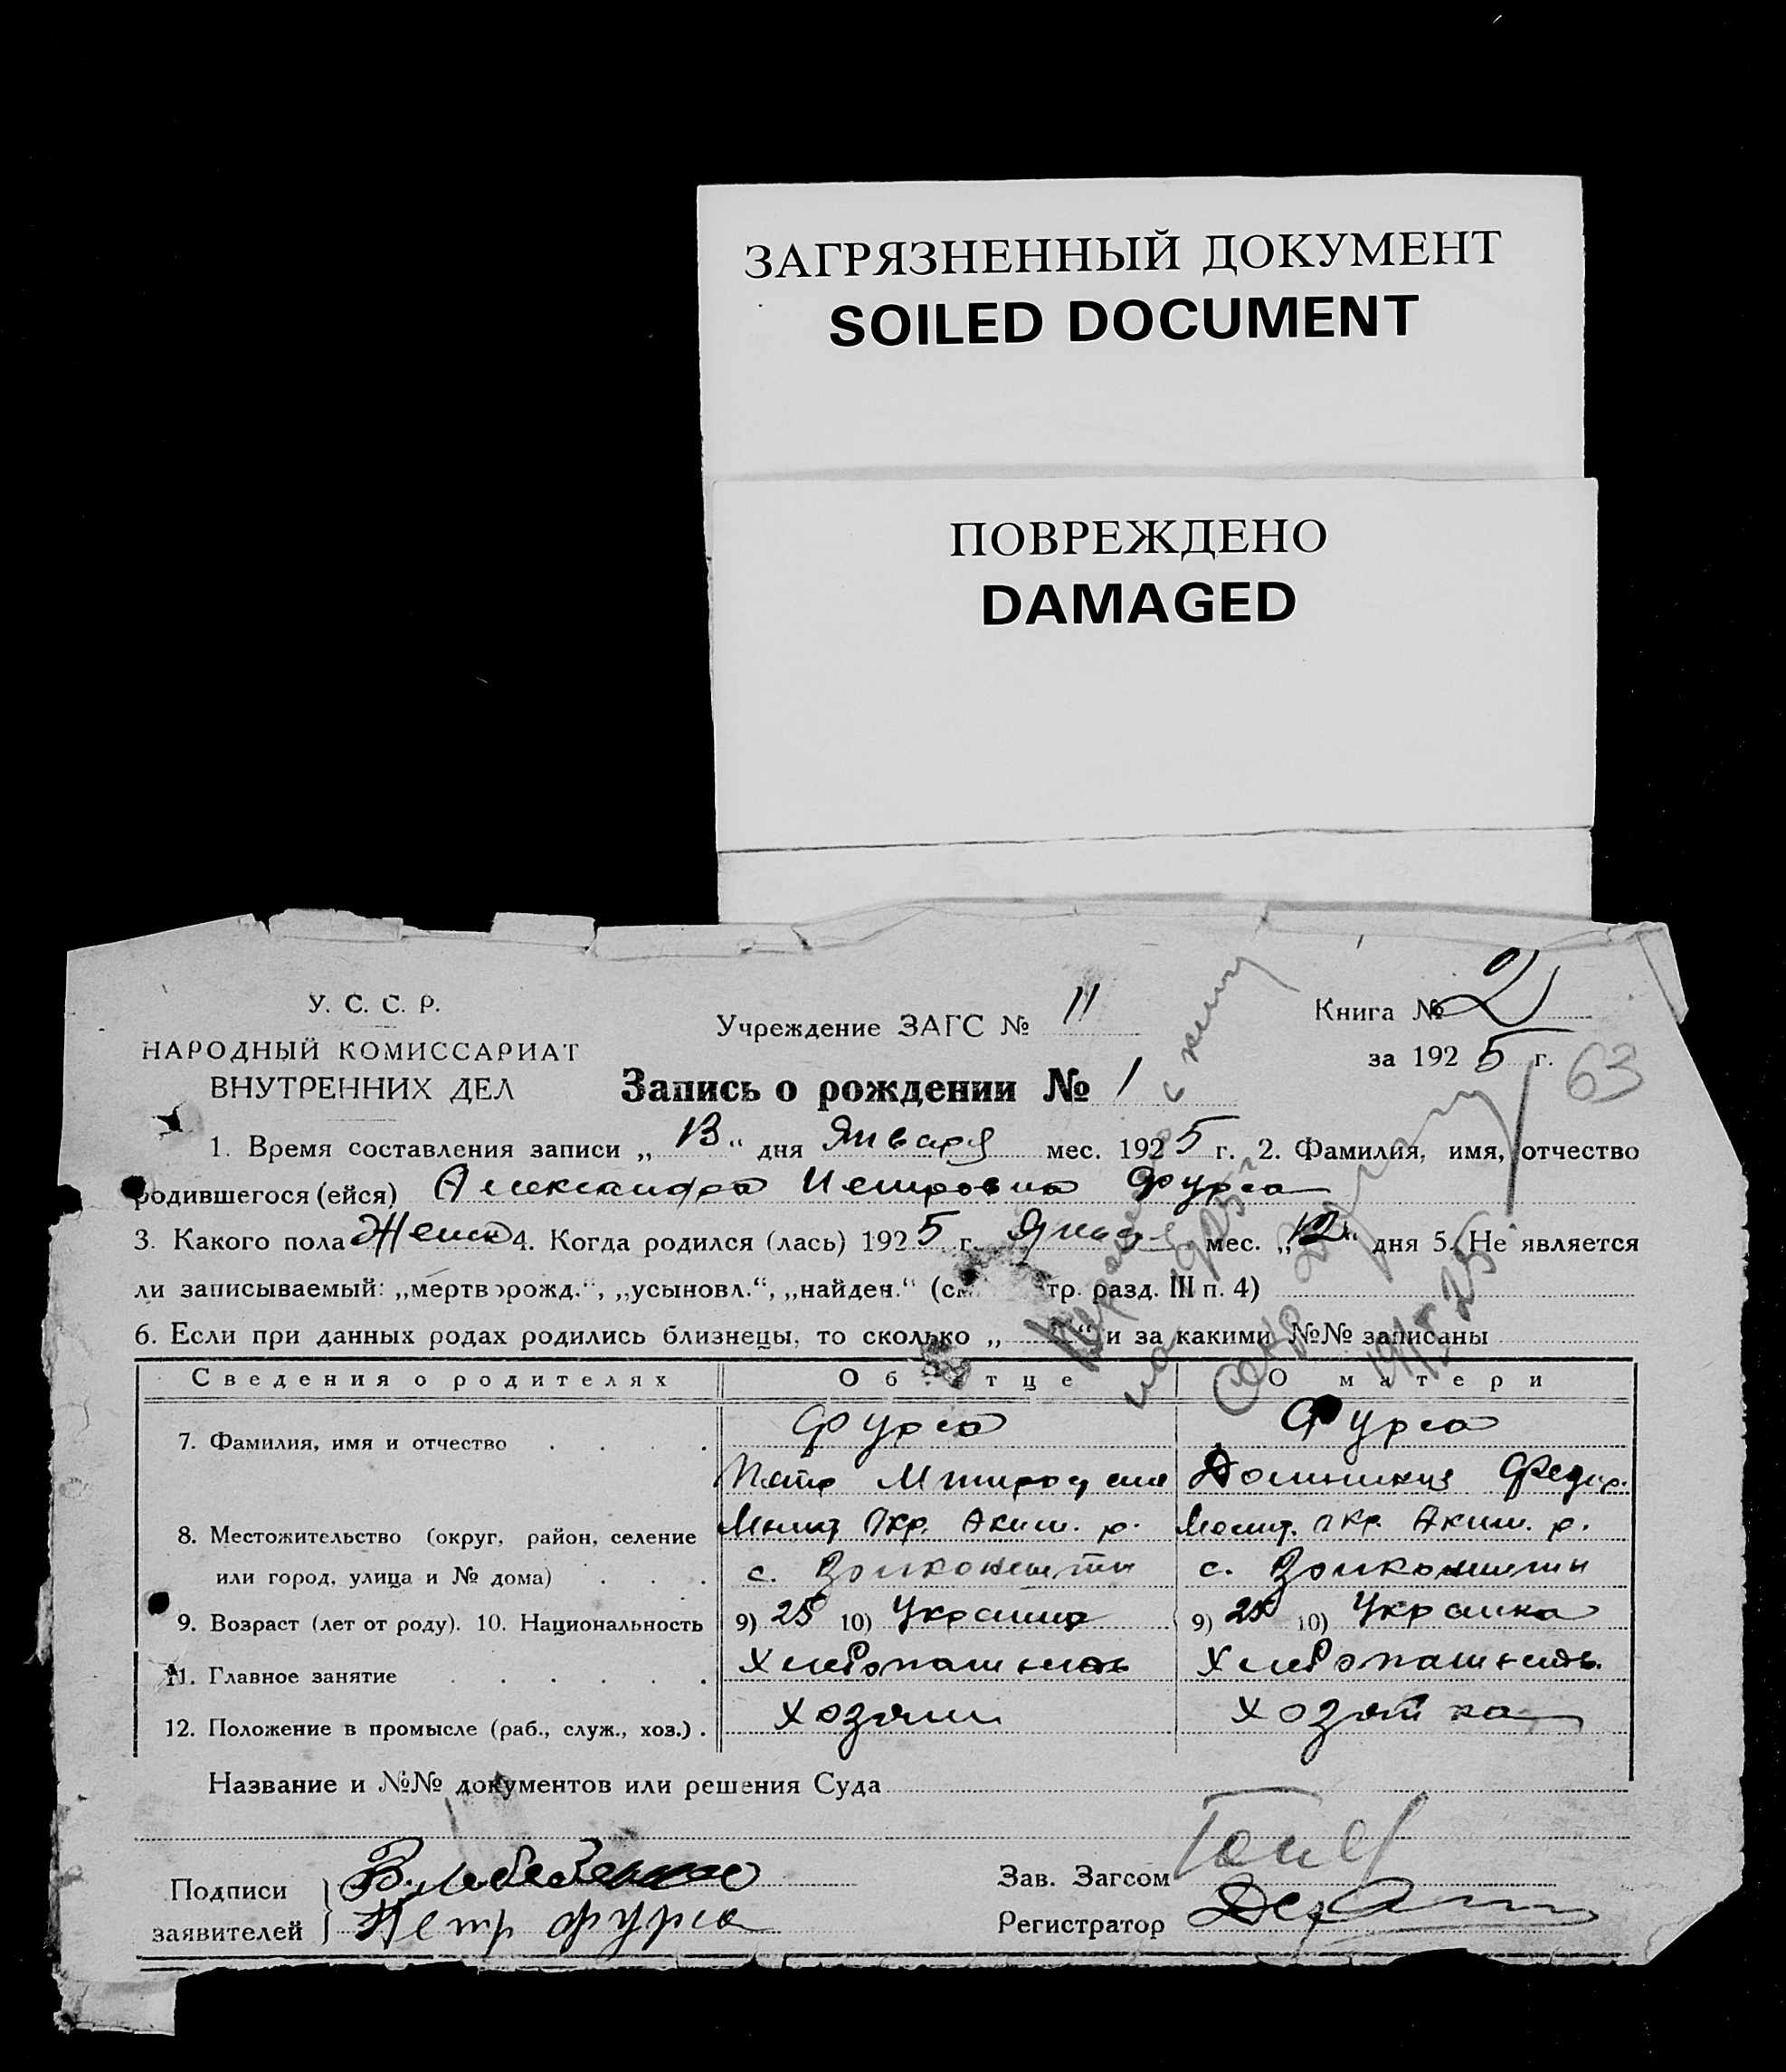 ЗАГРЯЗНЕННЫЙ ДОКУМЕНТ
SOILED DOCUMENT
ПОВРЕЖДЕНО
DAMAGED
У. С. С. Р.
НАРОДНЫЙ КОМИССАРИАТ
ВНУТРЕННИХ ДЕЛ
Учреждение ЗАГС № 11
Книга № 2
за 1925 г. 63
Запись о рождении № 1
1. Время составления записи „13“ дня Января мес. 1925 г. 2. Фамилия, имя, отчество
родившегося (ейся) Александра Петровна Фурса
3. Какого пола Женс 4. Когда родился (лась) 1925 г. мес. „12“ дня 5. Не является
ли записываемый: „мертворожд.“, „усыновл.“, „найден.“ тр. разд. III п. 4)
6. Если при данных родах родились близнецы, то сколько „ “ и за какими №№ записаны
Сведения о родителях Об отце О матери
7. Фамилия, имя и отчество Фурса Фурса
Петр Федор.
8. Местожительство (округ, район, селение Мелит. Окр. Аким. р. Мелит. Окр. Аким. р.
или город, улица и № дома) с. с.
9. Возраст (лет от роду). 10. Национальность 9) 25 10) Украинец 9) 10) Украинка
11. Главное занятие Хлебопашество Хлебопашество
12. Положение в промысле (раб., служ., хоз.) хозяин хозяйка
Название и №№ документов или решения Суда
Подписи
заявителей Петр Фурса
Зав. Загсом
Регистратор